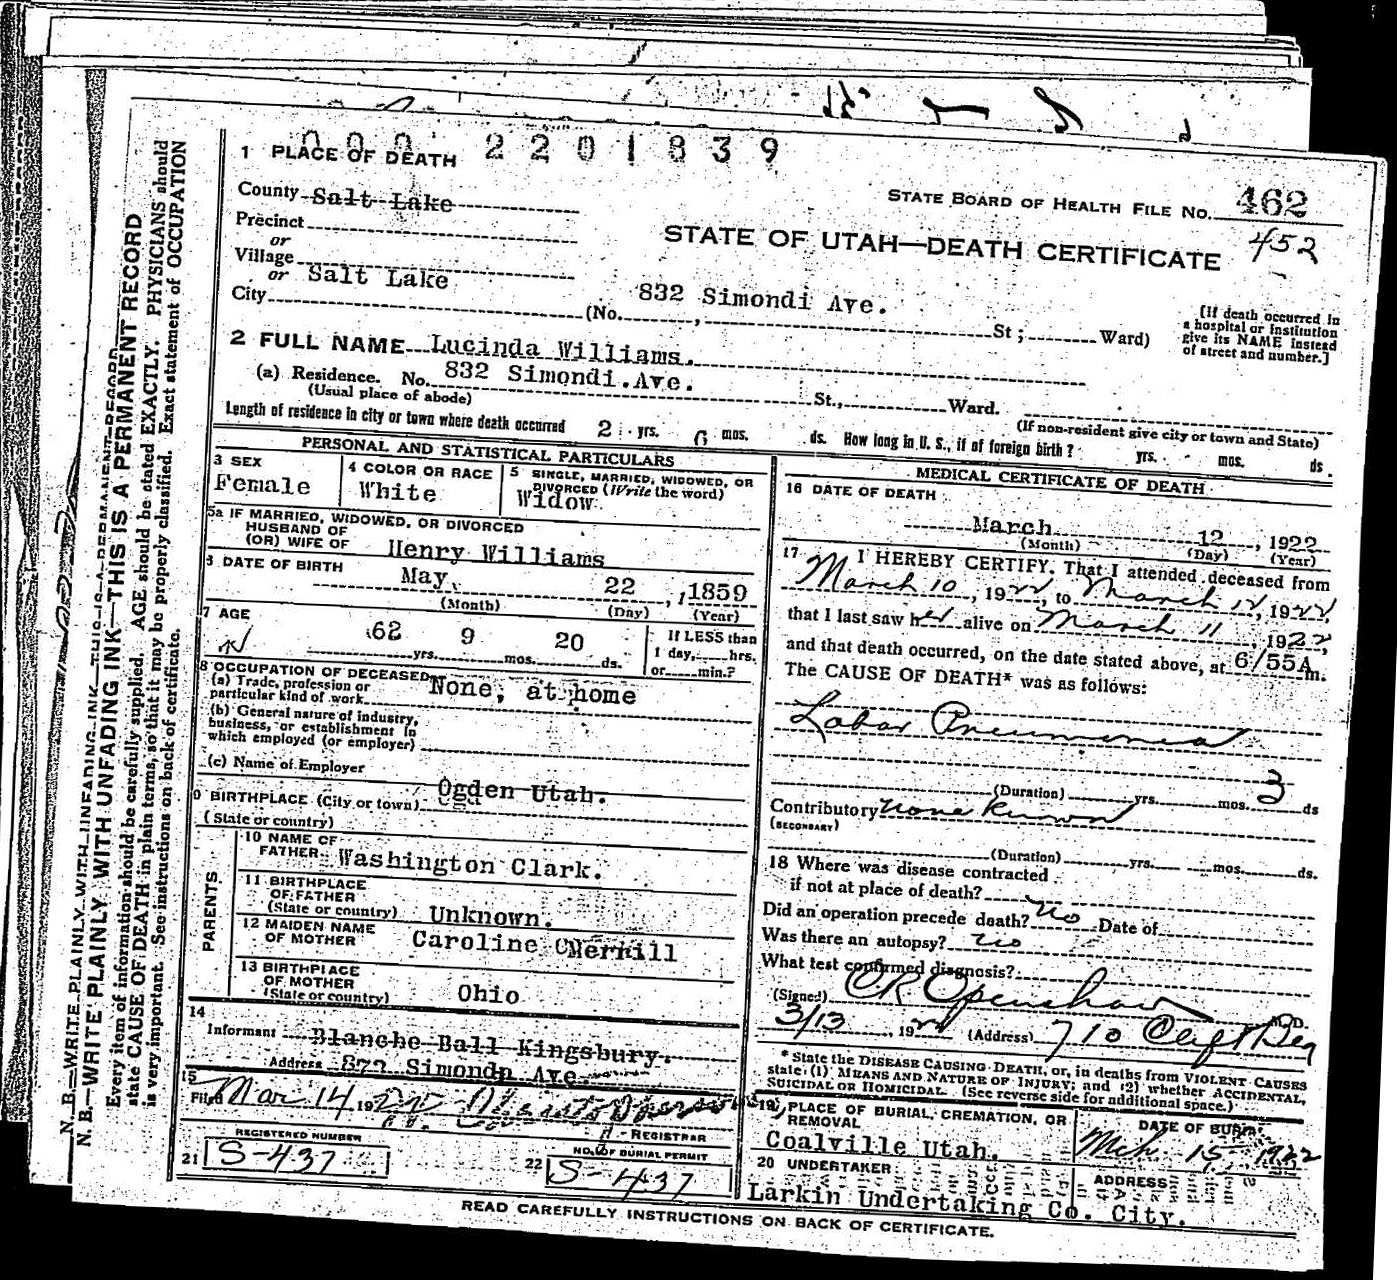 000 2201839
1 PLACE OF DEATH
County Salt Lake
STATE BOARD OF HEALTH FILE NO. 462
452
Precinct
or
Village
or Salt Lake
City
STATE OF UTAH—DEATH CERTIFICATE
(No. 832 Simondi Ave. St; Ward)
[If death occurred in
a hospital or institution
give its NAME instead
of street and number.]
2 FULL NAME Lucinda Williams.
(a) Residence. No. 832 Simondi.Ave. St., Ward.
(Usual place of abode)
(If non-resident give city or town and State)
Length of residence in city or town where death occurred 2 yrs. 6 mos. ds. How long in U. S., if of foreign birth? yrs. mos. ds.
PERSONAL AND STATISTICAL PARTICULARS
3 SEX
Female
4 COLOR OR RACE
White
5 SINGLE, MARRIED, WIDOWED, OR
DIVORCED (Write the word)
Widow
5a IF MARRIED, WIDOWED, OR DIVORCED
HUSBAND OF
(OR) WIFE OF Henry Williams
6 DATE OF BIRTH
May 22, 1859
(Month) (Day) (Year)
7 AGE
62 yrs. 9 mos. 20 ds.
If LESS than
1 day, hrs.
or min.?
8 OCCUPATION OF DECEASED
(a) Trade, profession or
particular kind of work None, at home
(b) General nature of industry,
business, or establishment in
which employed (or employer)
(c) Name of Employer
9 BIRTHPLACE (City or town) Ogden Utah.
(State or country)
PARENTS
10 NAME OF
FATHER Washington Clark.
11 BIRTHPLACE
OF FATHER
(State or country) Unknown.
12 MAIDEN NAME
OF MOTHER Caroline Merrill
13 BIRTHPLACE
OF MOTHER
(State or country) Ohio
14
Informant Blanche Ball Kingsbury.
Address 872 Simondp Ave
15
Filed Mar 14 19
REGISTRAR
REGISTERED NUMBER
21 S-437
NO. OF BURIAL PERMIT
22 S-437
MEDICAL CERTIFICATE OF DEATH
16 DATE OF DEATH
March 12, 1922
(Month) (Day) (Year)
17 I HEREBY CERTIFY, That I attended deceased from
March 10, 1922, to March 12, 1922,
that I last saw her alive on March 11 1922,
and that death occurred, on the date stated above, at 6/55A m.
The CAUSE OF DEATH* was as follows:
Lobar Pneumonia
(Duration) yrs. mos. 3 ds
Contributory none known
(SECONDARY)
(Duration) yrs. mos. ds.
18 Where was disease contracted
if not at place of death?
Did an operation precede death? no Date of
Was there an autopsy? no
What test confirmed diagnosis?
(Signed) CR Openshaw M.D.
3/13, 1922 (Address) 710 Clift Bldg
* State the DISEASE CAUSING DEATH, or, in deaths from VIOLENT CAUSES
state (1) MEANS AND NATURE OF INJURY; and (2) whether ACCIDENTAL,
SUICIDAL OR HOMICIDAL. (See reverse side for additional space.)
19 PLACE OF BURIAL, CREMATION, OR
REMOVAL
Coalville Utah.
DATE OF BURIAL
Mch. 15, 1922
20 UNDERTAKER
Larkin Undertaking Co. City.
ADDRESS
READ CAREFULLY INSTRUCTIONS ON BACK OF CERTIFICATE.
N. B.—WRITE PLAINLY WITH UNFADING INK—THIS IS A PERMANENT RECORD
N. B.—WRITE PLAINLY WITH UNFADING INK—THIS IS A PERMANENT RECORD
Every item of information should be carefully supplied. AGE should be stated EXACTLY. PHYSICIANS should
state CAUSE OF DEATH in plain terms, so that it may be properly classified. Exact statement of OCCUPATION
is very important. See instructions on back of certificate.